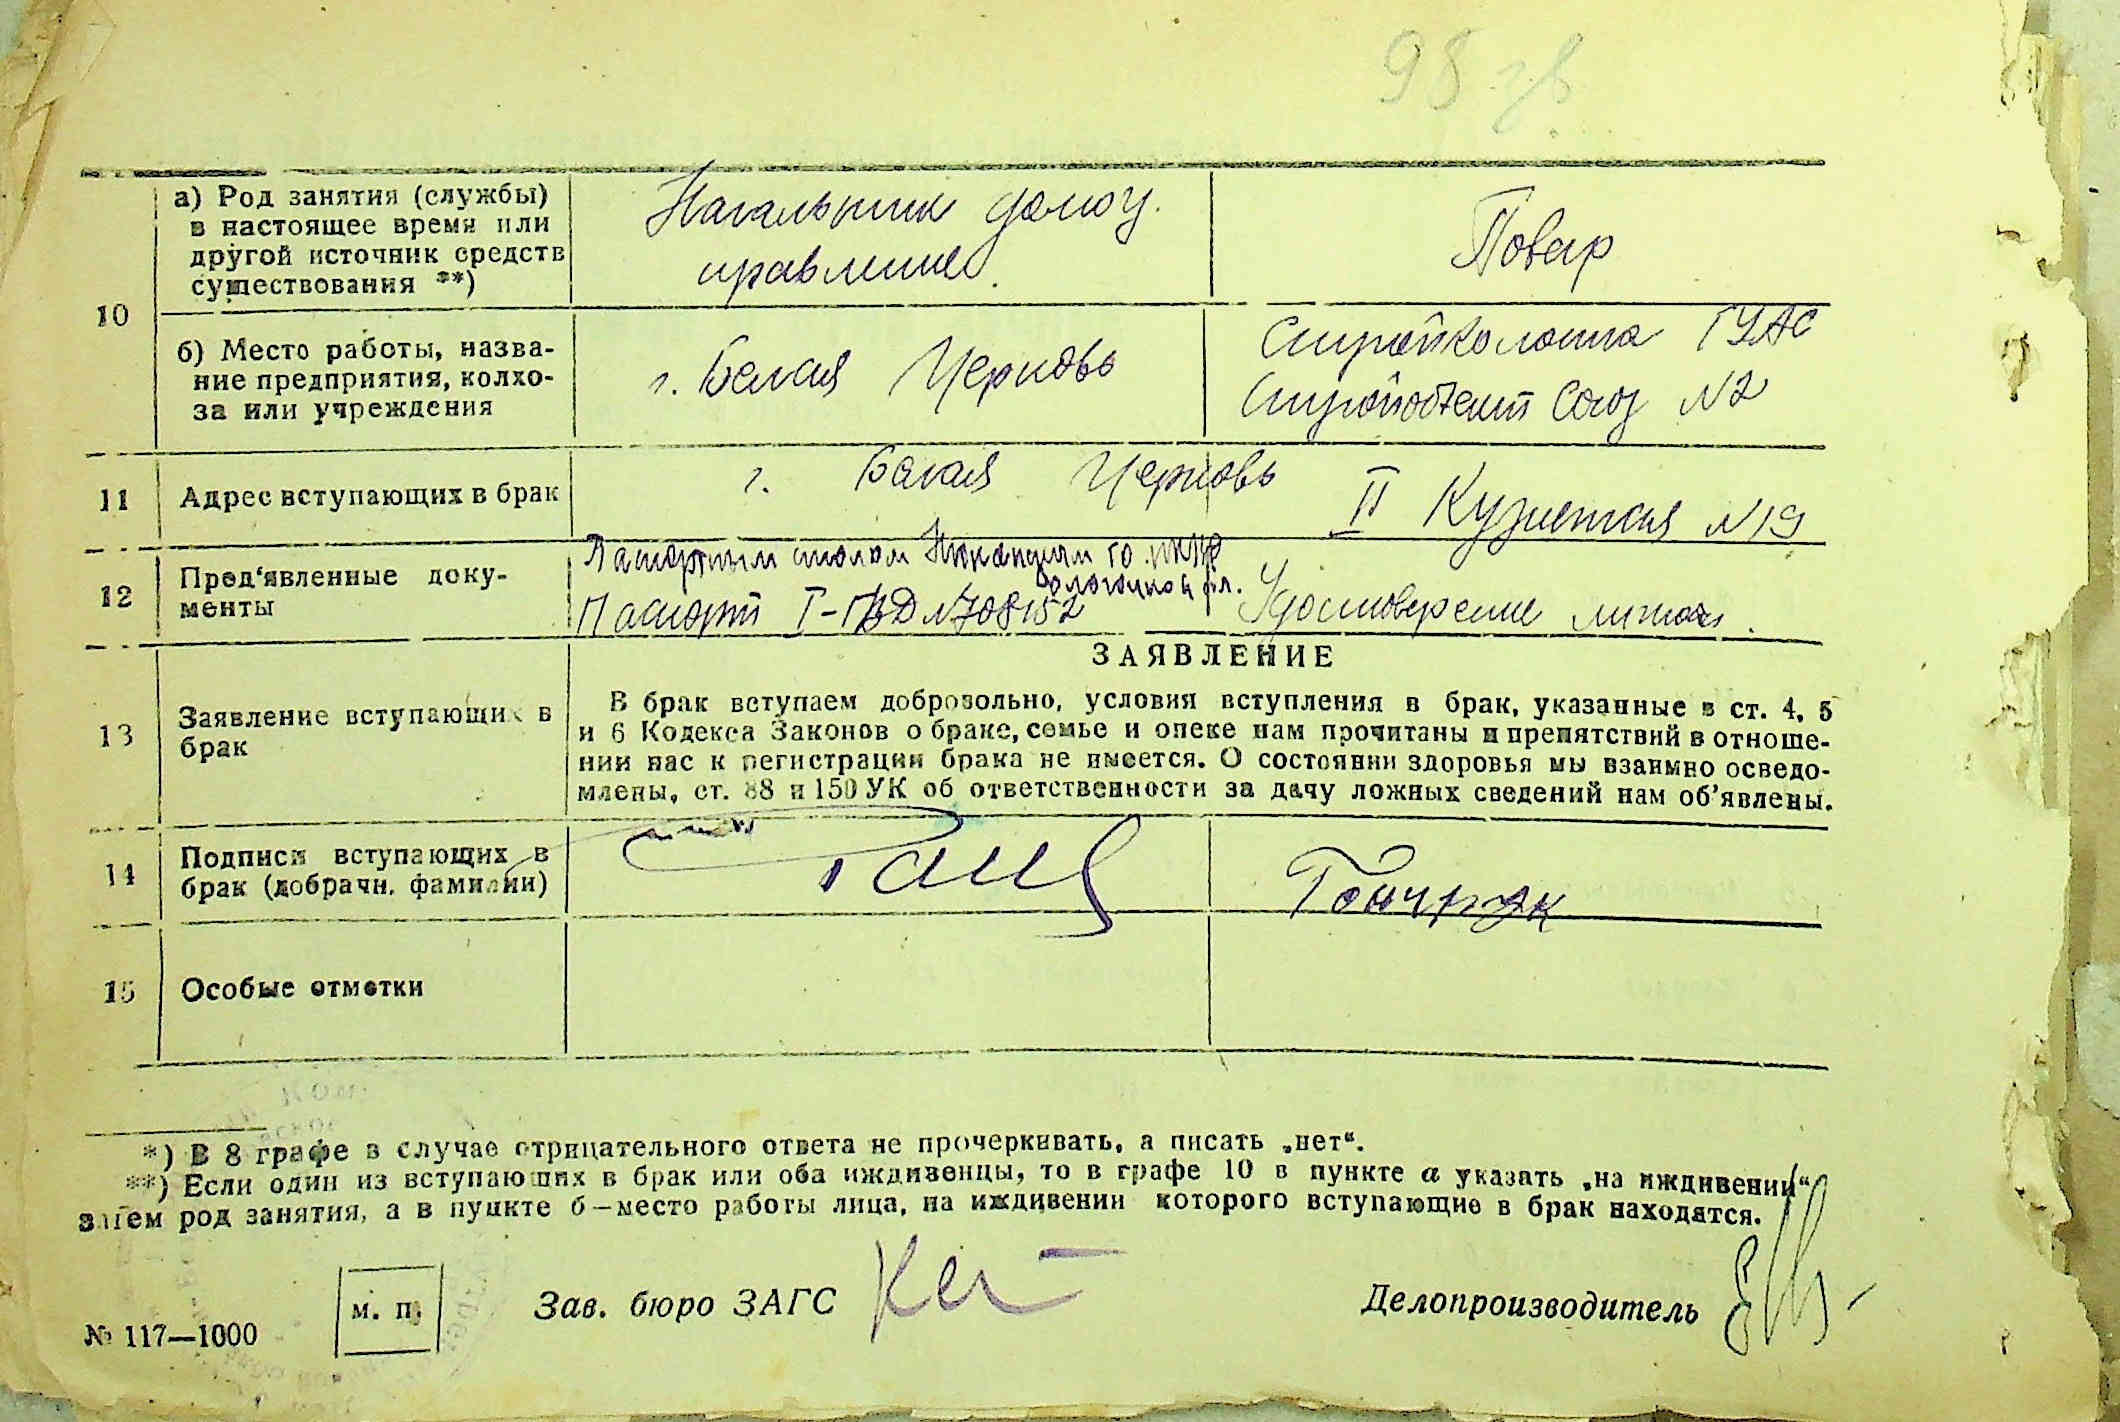 98
10
а) Род занятия (службы)
в настоящее время или
другой источник средств
существования **)
Начальник домоу.
правление
Повар
б) Место работы, назва-
ние предприятия, колхо-
за или учреждения
г. Белая Церковь
ГУАС
Союз N2
11
Адрес вступающих в брак
г. Белая Церковь II Кузнечная N19
12
Пред'явленные доку-
менты
Паспортным столом
Паспорт N708152
Удостоверение личности.
13
Заявление вступающих в
брак
ЗАЯВЛЕНИЕ
В брак вступаем добровольно, условия вступления в брак, указанные в ст. 4, 5
и 6 Кодекса Законов о браке, семье и опеке нам прочитаны и препятствий в отноше-
нии нас к регистрации брака не имеется. О состоянии здоровья мы взаимно осведо-
млены, ст. 88 и 150 УК об ответственности за дачу ложных сведений нам об'явлены.
14
Подписи вступающих в
брак (добрачн. фамилии)
Гончарук
15
Особые отметки
*) В 8 графе в случае отрицательного ответа не прочеркивать, а писать „нет“.
**) Если один из вступающих в брак или оба иждивенцы, то в графе 10 в пункте а указать „на иждивении“
затем род занятия, а в пункте б—место работы лица, на иждивении которого вступающие в брак находятся.
№ 117—1000
м. п.
Зав. бюро ЗАГС
Делопроизводитель